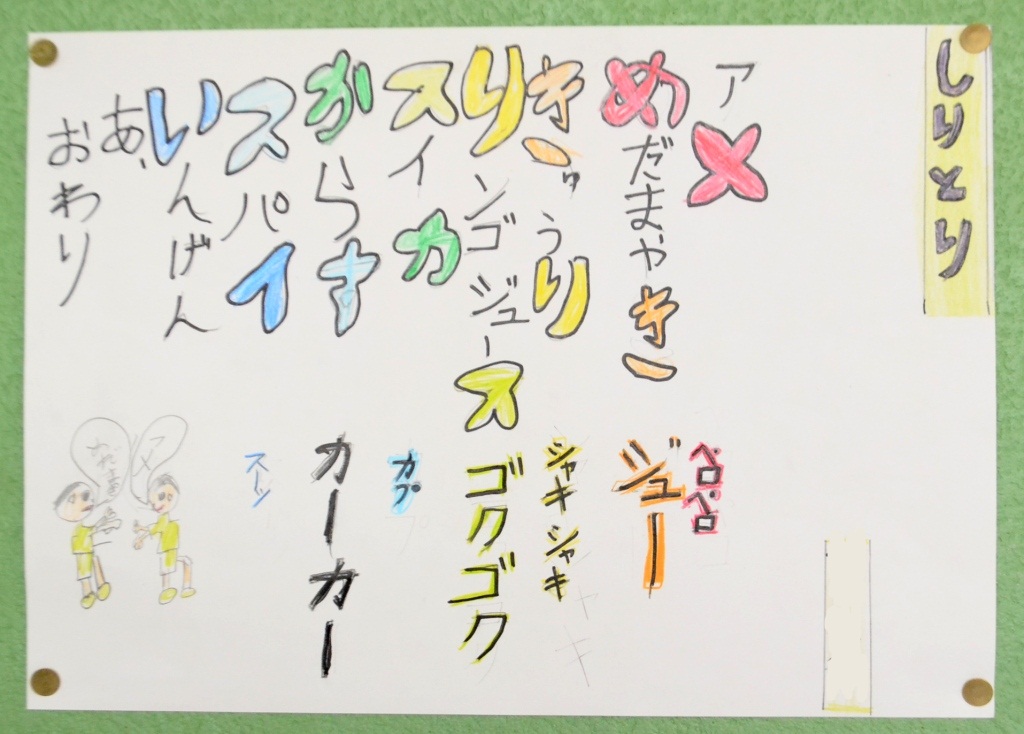 しりとり
アメ
めだまやき
きゅうり
リンゴジュース
スイカ
からす
スパイ
いんげん
あ、
おわり
ペロペロ
ジュー
シャキシャキ
ゴクゴク
カプ
カーカー
スーッ
アメ